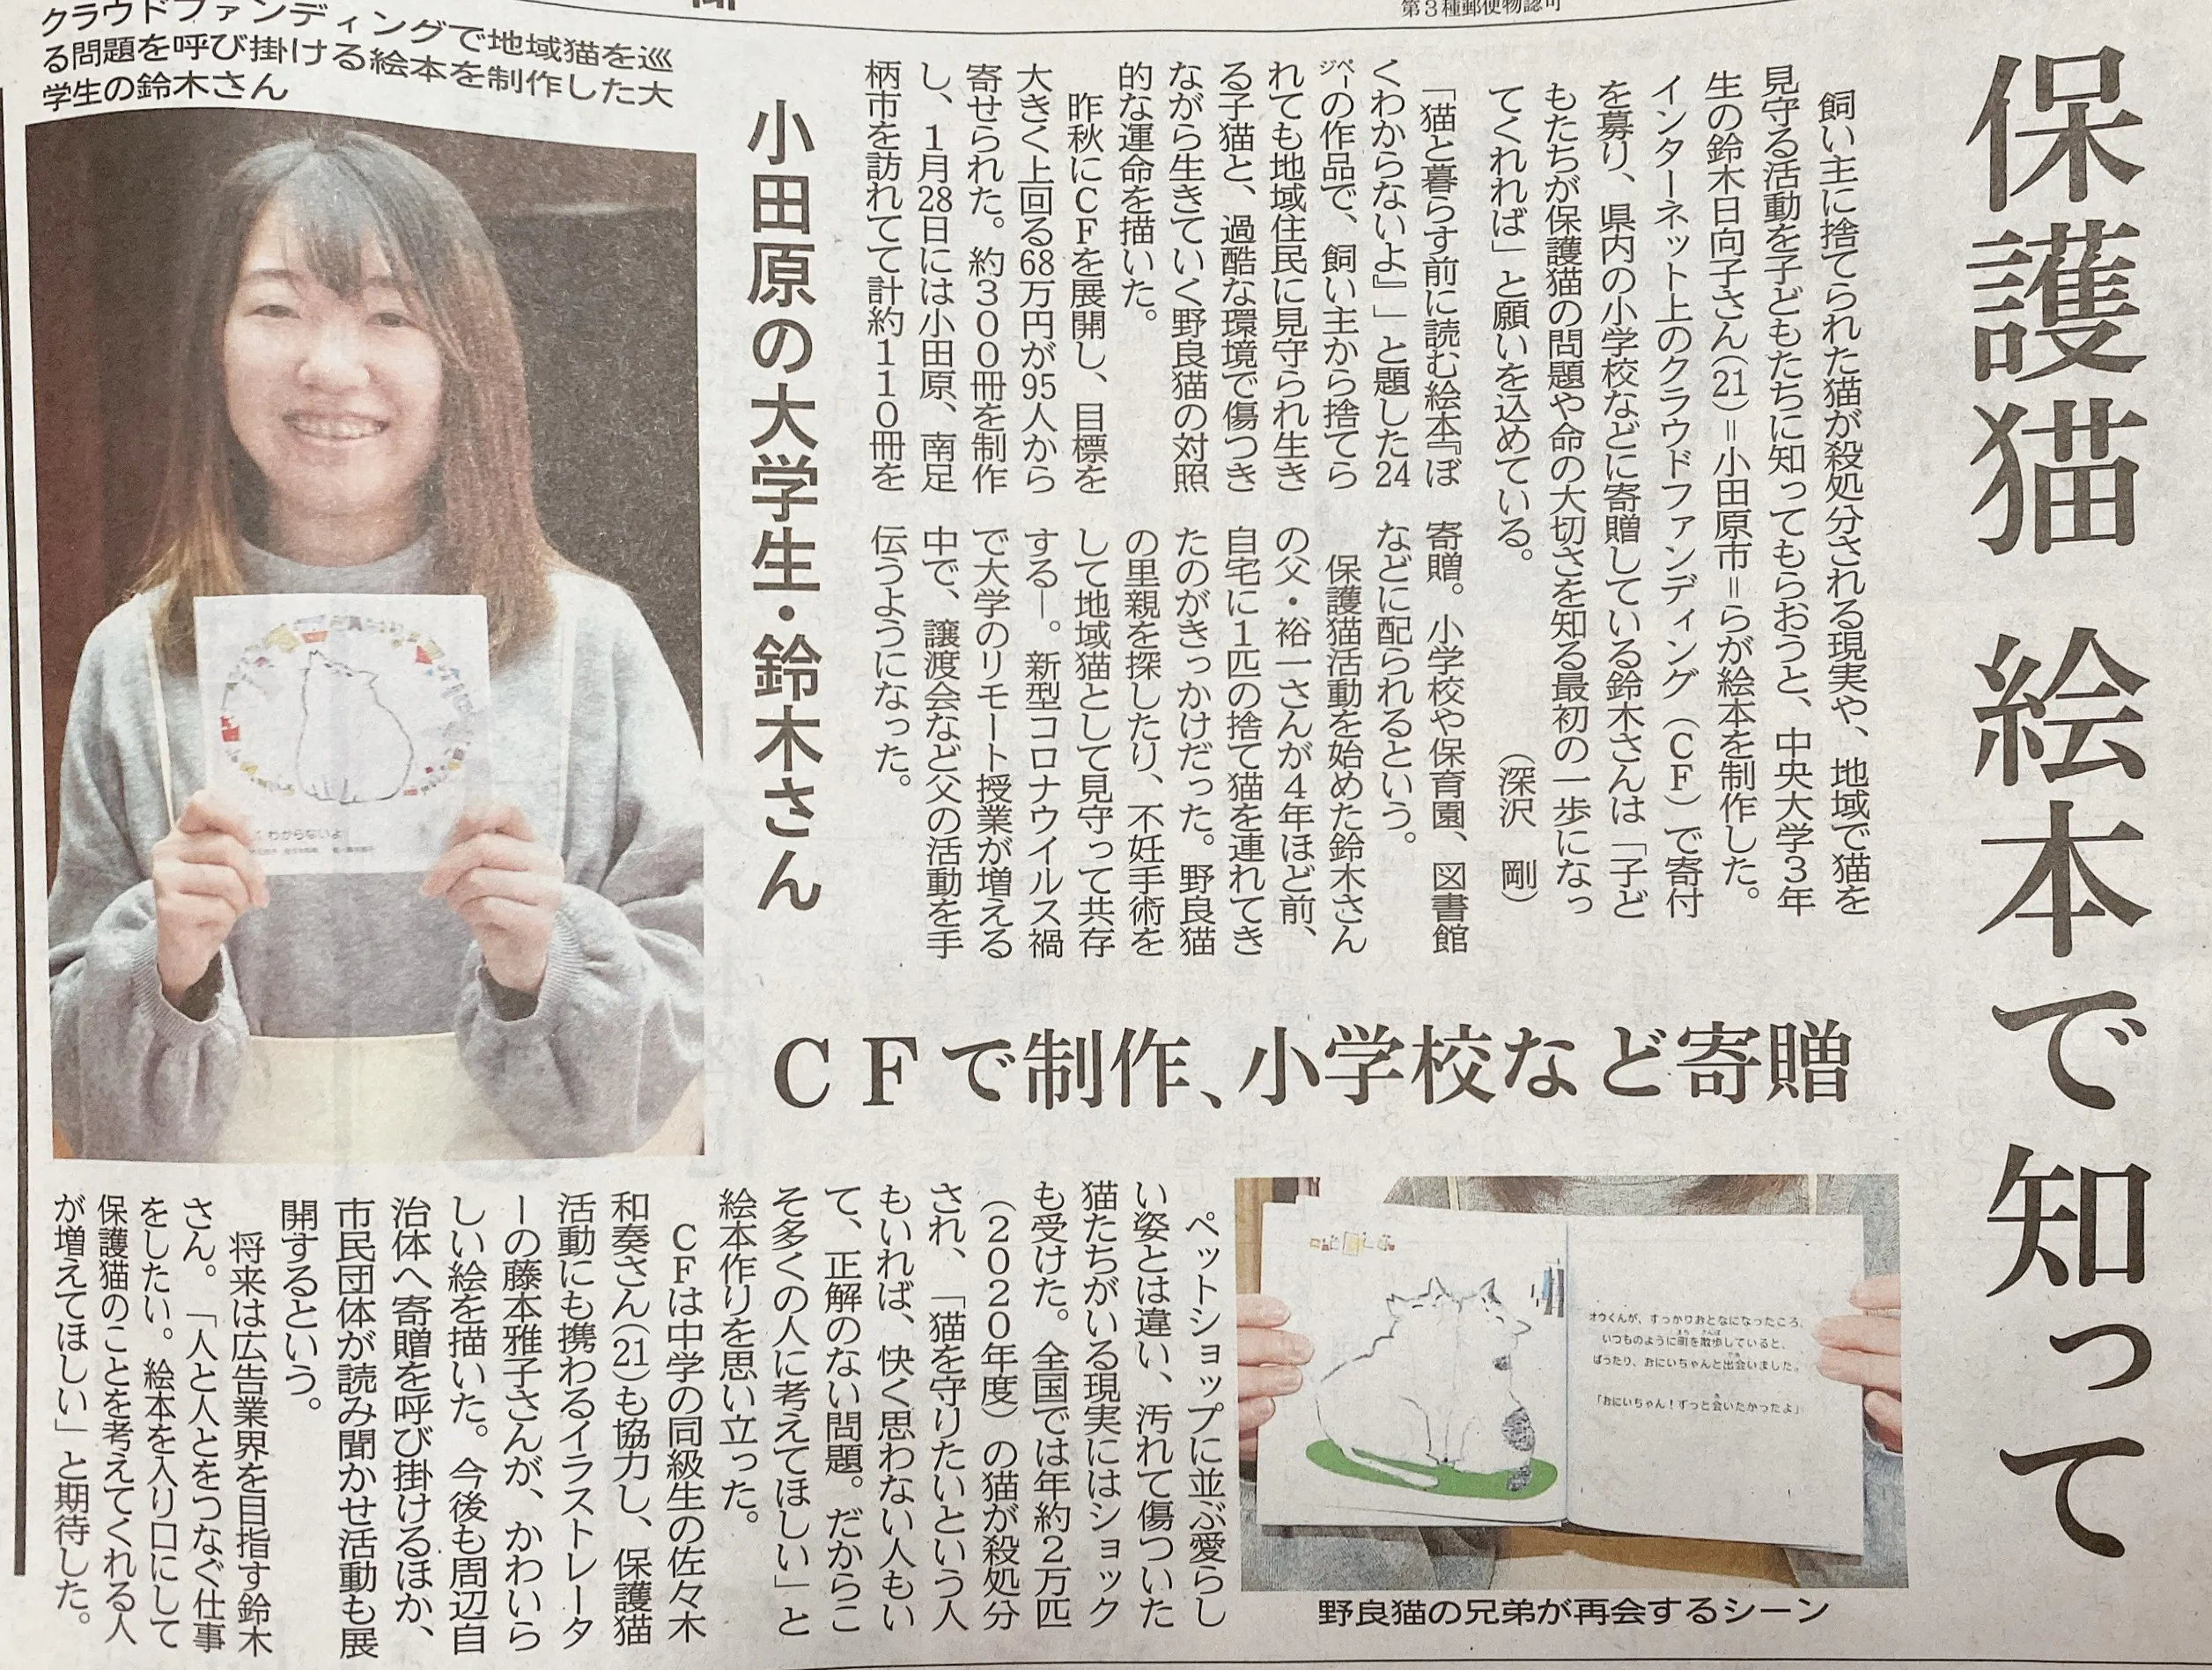 第3種郵便物認可
保護猫 絵本で知って
飼い主に捨てられた猫が殺処分される現実や、地域で猫を
見守る活動を子どもたちに知ってもらおうと、中央大学3年
生の鈴木日向子さん(21)=小田原市=らが絵本を制作した。
インターネット上のクラウドファンディング(CF)で寄付
を募り、県内の小学校などに寄贈している鈴木さんは「子ど
もたちが保護猫の問題や命の大切さを知る最初の一歩になっ
てくれれば」と願いを込めている。
(深沢 剛)
「猫と暮らす前に読む絵本『ぼ
くわからないよ』」と題した24
ページの作品で、飼い主から捨てら
れても地域住民に見守られ生き
る子猫と、過酷な環境で傷つき
ながら生きていく野良猫の対照
的な運命を描いた。
昨秋にCFを展開し、目標を
大きく上回る68万円が95人から
寄せられた。約300冊を制作
し、1月28日には小田原、南足
柄市を訪れてて計約110冊を
寄贈。小学校や保育園、図書館
などに配られるという。
保護猫活動を始めた鈴木さん
の父・裕一さんが4年ほど前、
自宅に1匹の捨て猫を連れてき
たのがきっかけだった。野良猫
の里親を探したり、不妊手術を
して地域猫として見守って共存
する―。新型コロナウイルス禍
で大学のリモート授業が増える
中で、譲渡会など父の活動を手
伝うようになった。
小田原の大学生・鈴木さん
クラウドファンディングで地域猫を巡
る問題を呼び掛ける絵本を制作した大
学生の鈴木さん
わからないよ
CFで制作、小学校など寄贈
オウくんが、すっかりおとなになったころ、
いつものように町を散歩していると、
ばったり、おにいちゃんと出会いました。
「おにいちゃん！ずっと会いたかったよ」
野良猫の兄弟が再会するシーン
ペットショップに並ぶ愛らし
い姿とは違い、汚れて傷ついた
猫たちがいる現実にはショック
も受けた。全国では年約2万匹
(2020年度)の猫が殺処分
され、「猫を守りたいという人
もいれば、快く思わない人もい
て、正解のない問題。だからこ
そ多くの人に考えてほしい」と
絵本作りを思い立った。
CFは中学の同級生の佐々木
和奏さん(21)も協力し、保護猫
活動にも携わるイラストレータ
ーの藤本雅子さんが、かわいら
しい絵を描いた。今後も周辺自
治体へ寄贈を呼び掛けるほか、
市民団体が読み聞かせ活動も展
開するという。
将来は広告業界を目指す鈴木
さん。「人と人とをつなぐ仕事
をしたい。絵本を入り口にして
保護猫のことを考えてくれる人
が増えてほしい」と期待した。